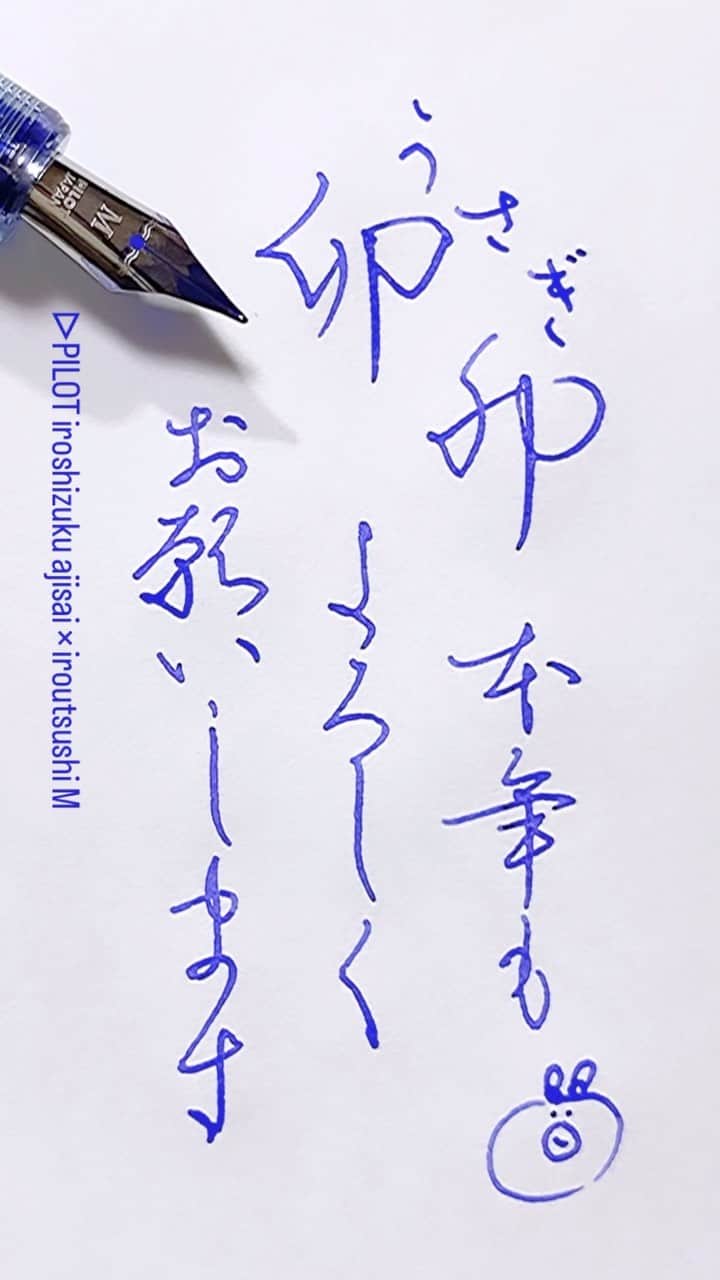 うさぎ
卯
卯
本年も
よろしく
お願いします
PILOT
JAPAN
M
▷PILOT iroshizuku ajisai × iroutsushi M